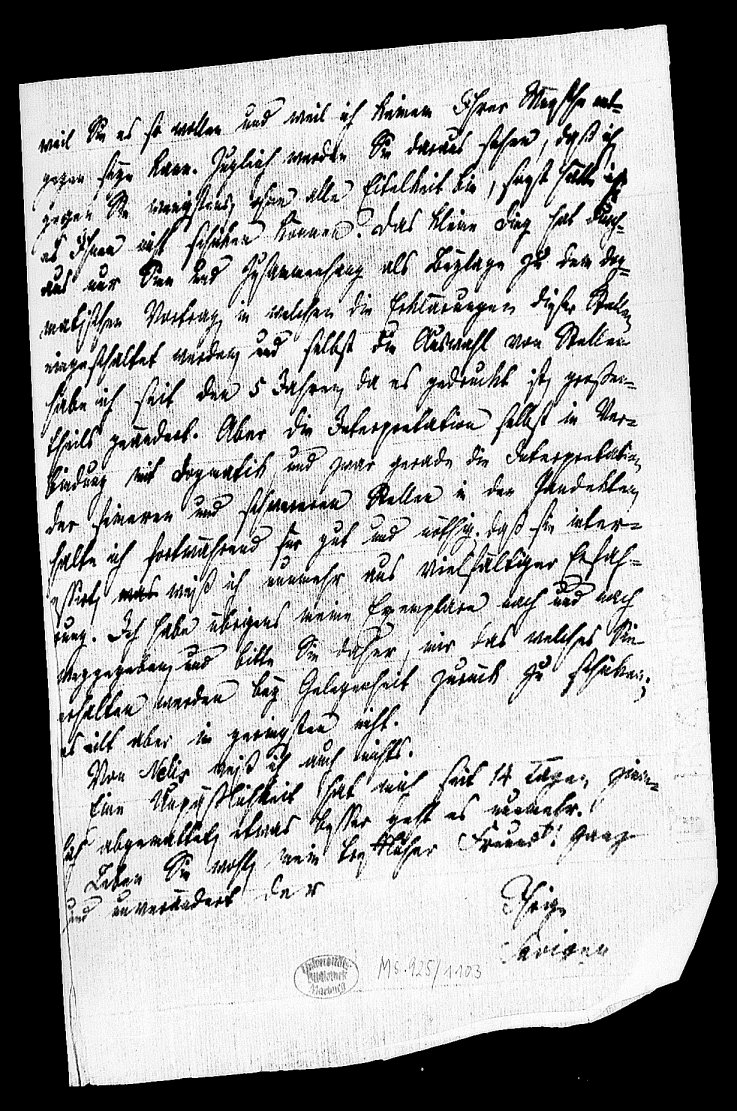 weil Sie es so wollen und weil ich keinem Ihrer Wünsche ent-
gegen seyn kann. Zugleich werden Sie daraus sehen, daß ich
gegen Sie wenigstens ohne alle Eitelkeit bin, sonst hätte ich
es Ihnen nicht schicken können. Das kleine Ding hat durch-
aus nur Sinn und Zusammenhang als Beylage zu dem dog-
matischen Vortrag, in welchen die Erklärungen dieser Stellen
eingeschaltet werden, und selbst die Auswahl von Stellen
habe ich seit den 5 Jahren, da es gedruckt ist, großen-
theils geändert. Aber die Interpretation selbst in Ver-
bindung mit Dogmatik, und zwar gerade die Interpretation
der feineren und schwereren Stellen in den Pandekten,
halte ich fortwährend für gut und nöthig. daß sie inter-
essirt, weiß ich nunmehr aus vielfältiger Erfah-
rung. Ich habe übrigens meine Exemplare nach und nach
weggegeben, und bitte Sie daher, mir das welches Sie
erhalten werden bey Gelegenheit zurück zu schicken;
es eilt aber im geringsten nicht.
Von Nelis weiß ich auch nichts.
Eine Unpäßlichkeit hat mich seit 14 Tagen ziem-
lich abgemattet, etwas besser geht es nunmehr.
Leben Sie wohl, mein trefflicher Freund! Ganz
und unverändert der
Ihrige
Savigny
Universitäts-
Bibliothek
Marburg
Ms. 925/1103